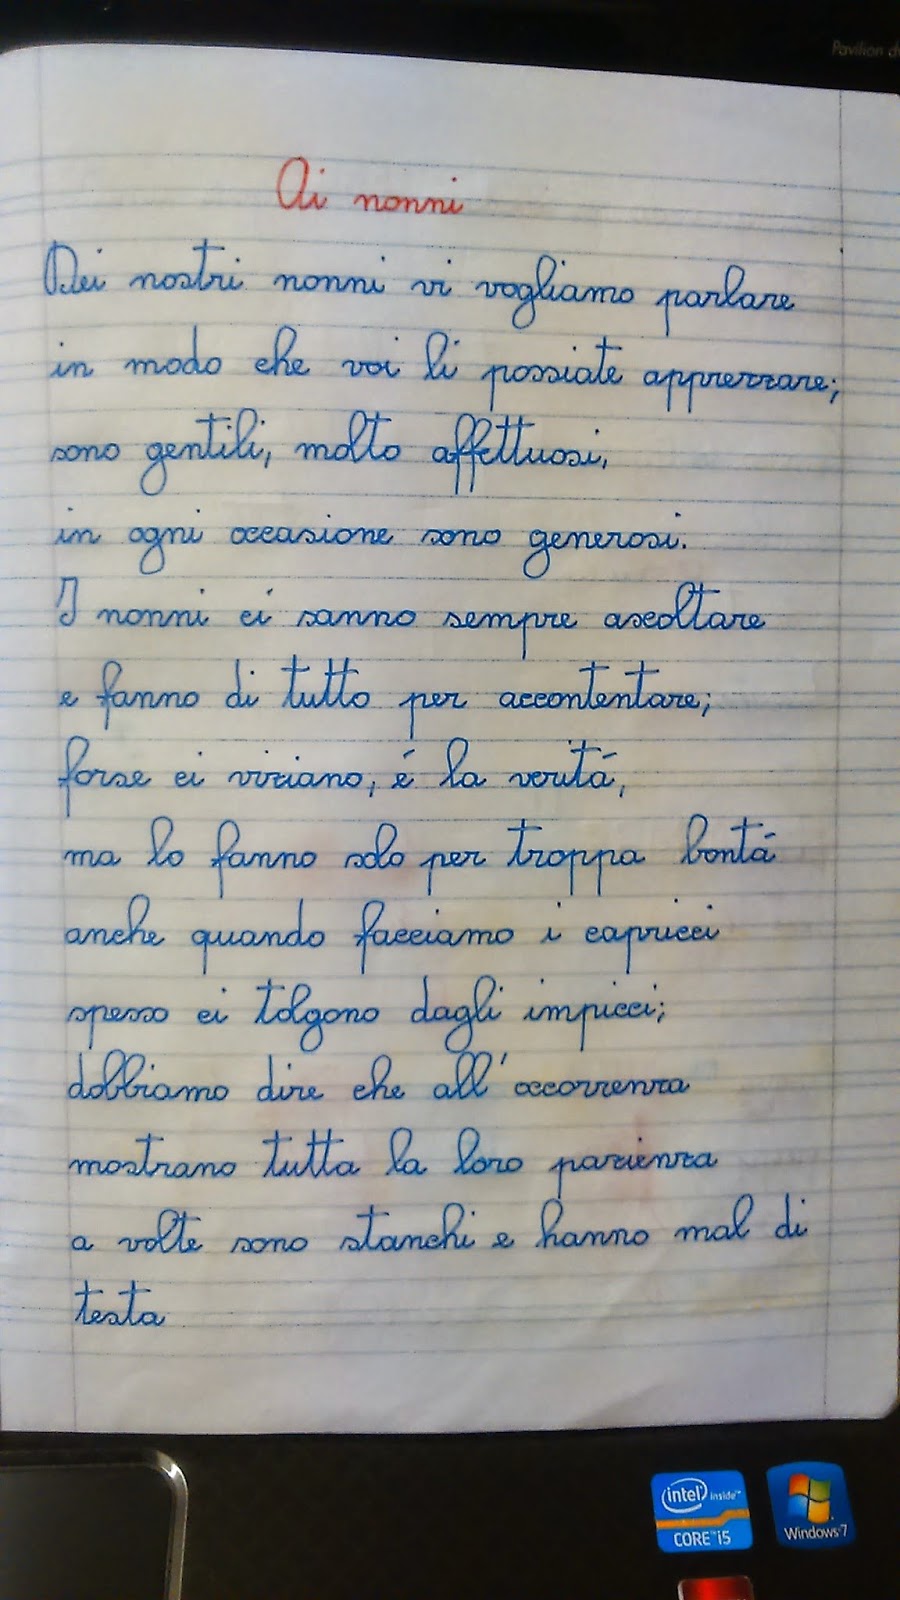 Pavilion dv
Ai nonni
Dei nostri nonni vi vogliamo parlare
in modo che voi li possiate apprezzare;
sono gentili, molto affettuosi,
in ogni occasione sono generosi.
I nonni ci sanno sempre ascoltare
e fanno di tutto per accontentare;
forse ci viziano, é la veritá,
ma lo fanno solo per troppa bontá
anche quando facciamo i capricci
spesso ci tolgono dagli impicci;
dobbiamo dire che all'occorrenza
mostrano tutta la loro pazienza
a volte sono stanchi e hanno mal di
testa
intel inside™
CORE™ i5
Windows 7